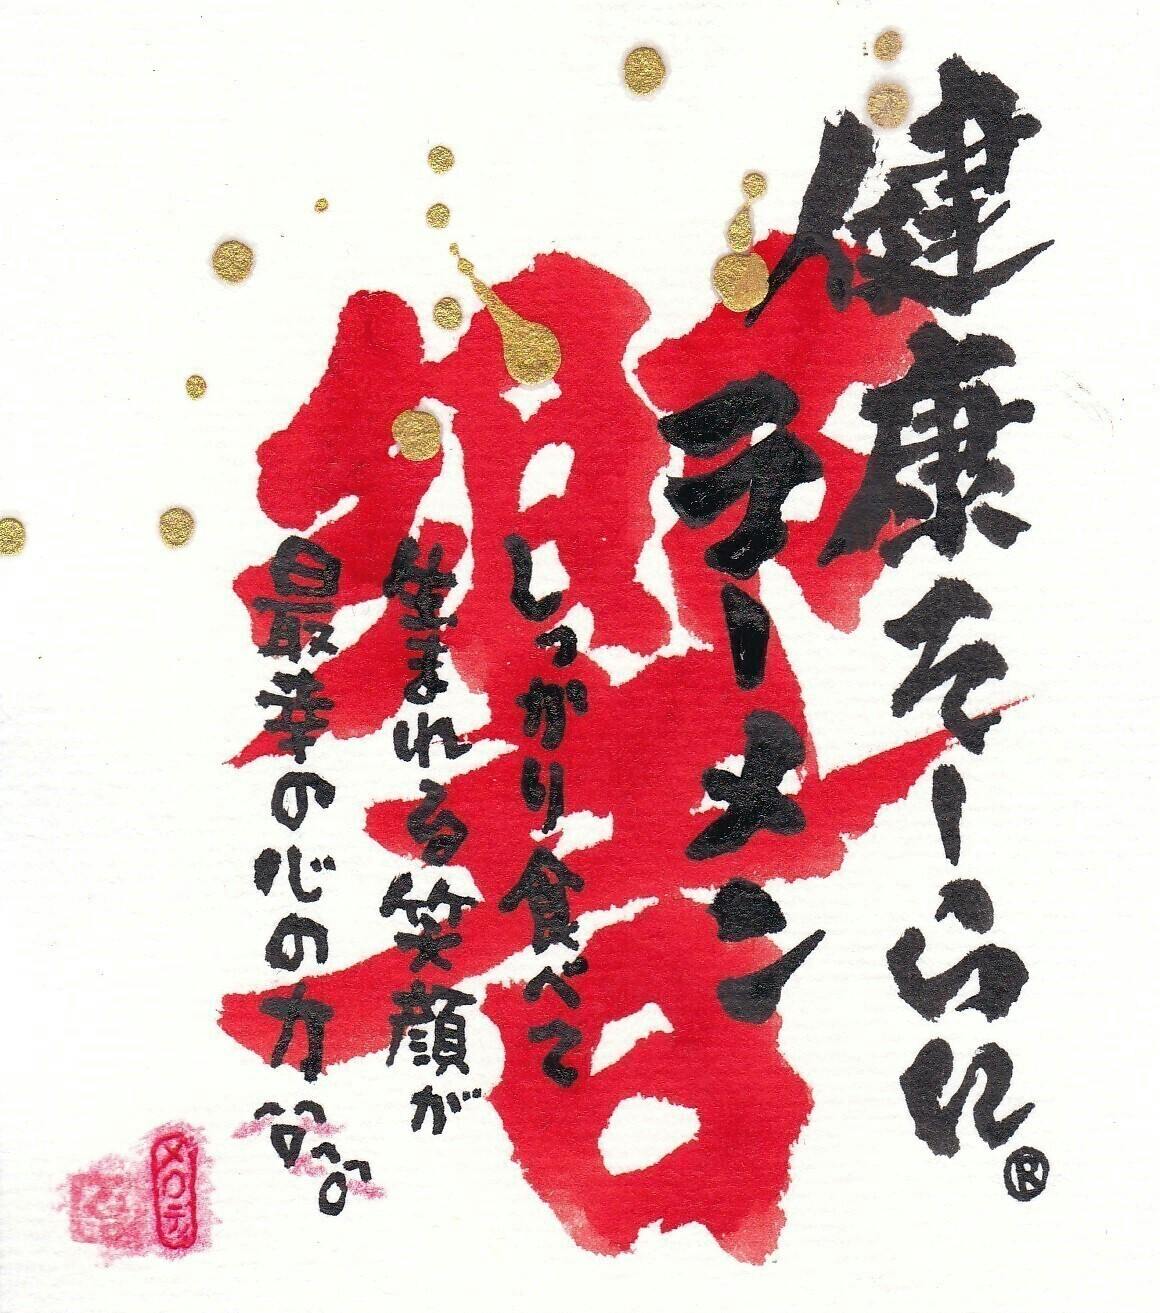 健康そーらん®
ラーメン
響
しっかり食べて
生まれる笑顔が
最幸の心の力